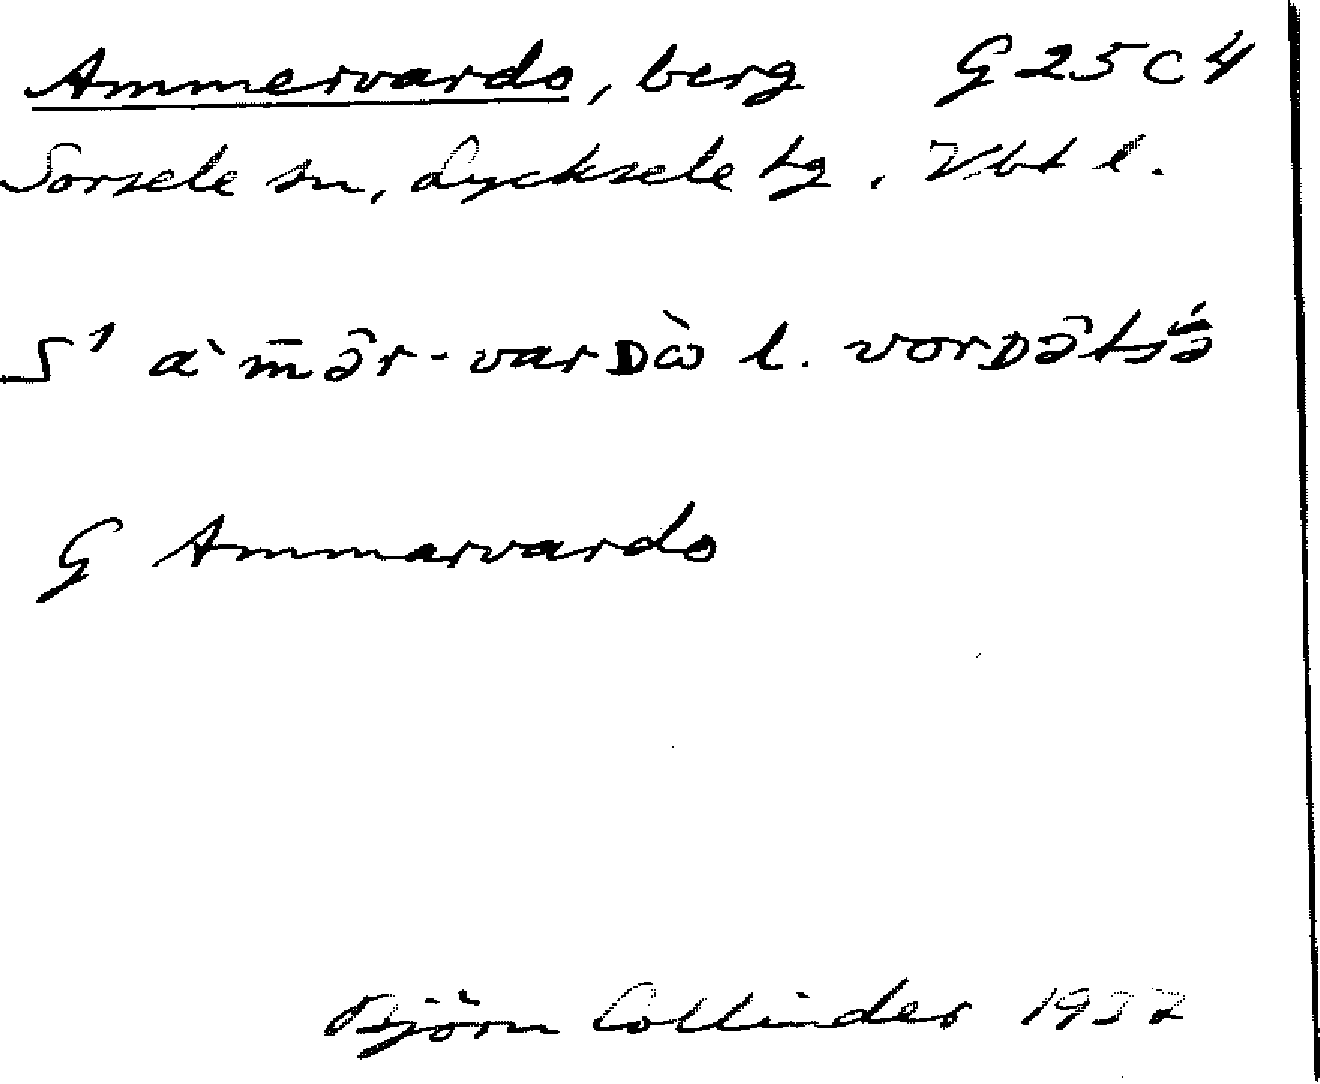 Ammervardo, berg G 25 C 4
Sorsele sn, Lycksele tg, Vbt l.
S' a` m̄ə̑r-varᴅὼ l. vorᴅə̑tsə́
G Ammarvardo
Björn Collinder 1932